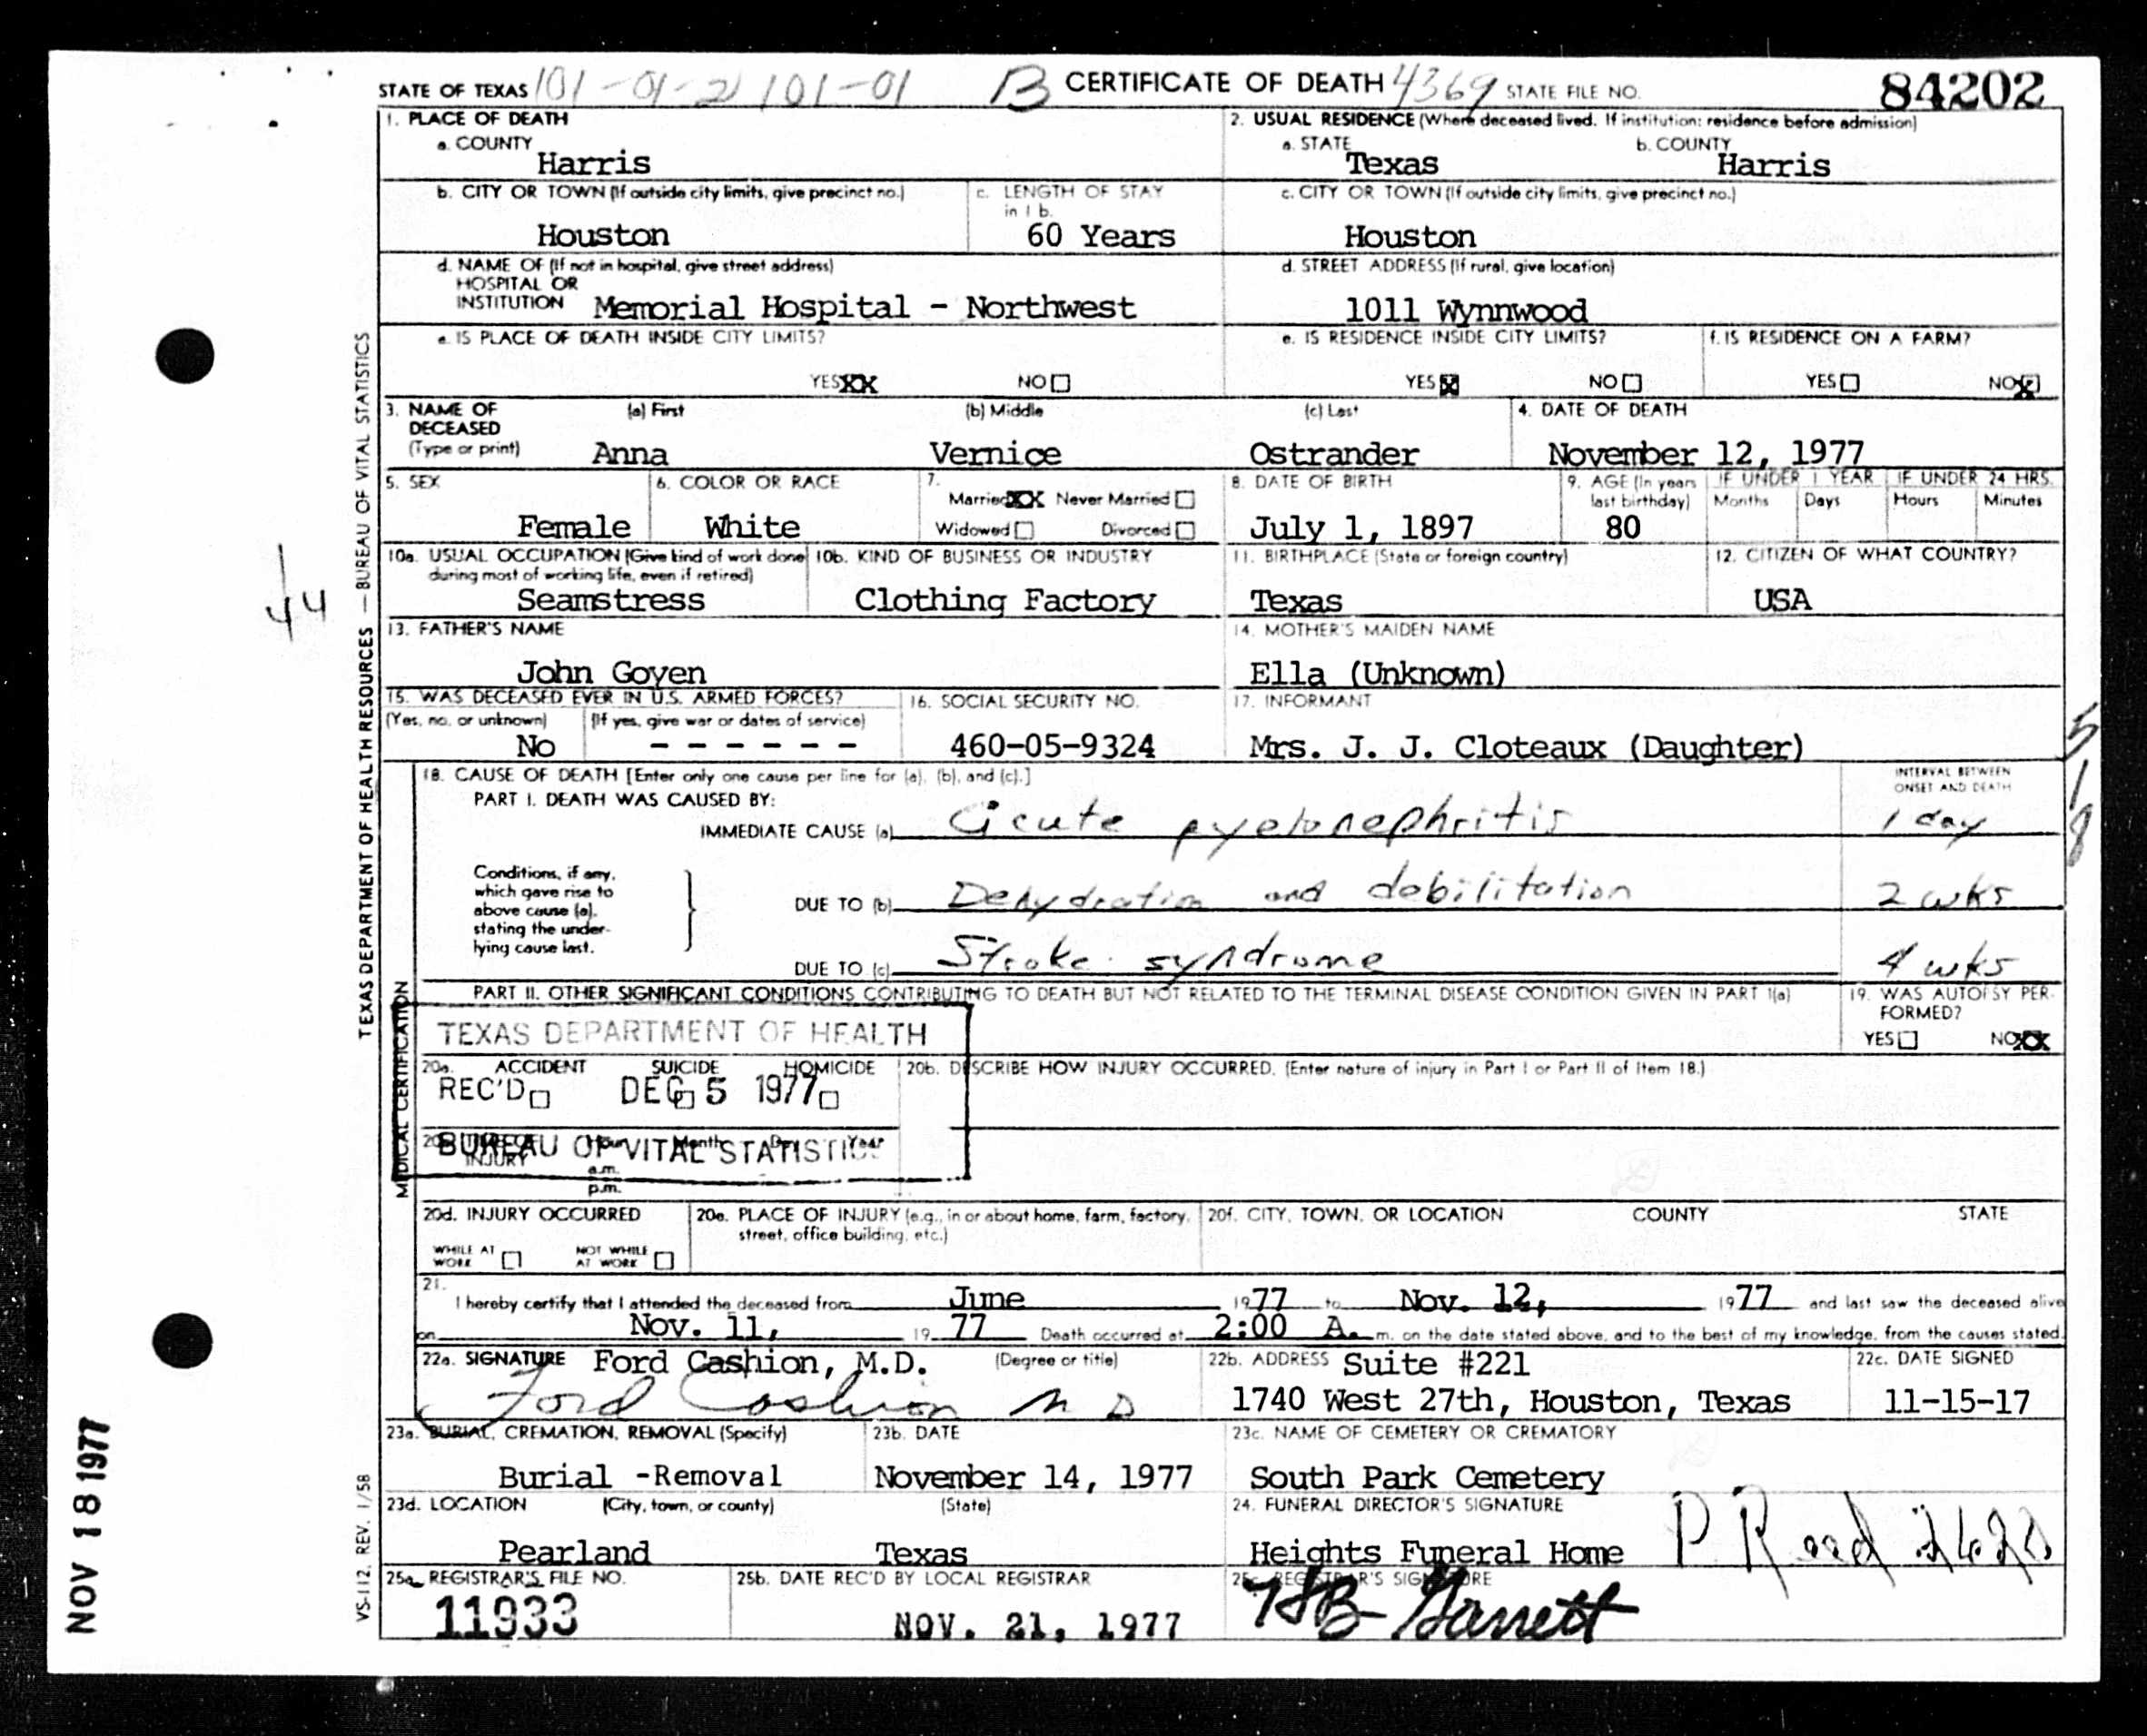 STATE OF TEXAS 101-01-2 101-01 B CERTIFICATE OF DEATH 4369 STATE FILE NO. 84202
1. PLACE OF DEATH
a. COUNTY
Harris
2. USUAL RESIDENCE (Where deceased lived. If institution: residence before admission)
a. STATE
Texas
b. COUNTY
Harris
b. CITY OR TOWN (If outside city limits, give precinct no.)
Houston
c. LENGTH OF STAY
in 1 b.
60 Years
c. CITY OR TOWN (If outside city limits, give precinct no.)
Houston
d. NAME OF (If not in hospital, give street address)
HOSPITAL OR
INSTITUTION Memorial Hospital - Northwest
d. STREET ADDRESS (If rural, give location)
1011 Wynnwood
e. IS PLACE OF DEATH INSIDE CITY LIMITS?
YES XX NO
e. IS RESIDENCE INSIDE CITY LIMITS?
YES X NO
f. IS RESIDENCE ON A FARM?
YES NO X
3. NAME OF
DECEASED
(Type or print)
(a) First (b) Middle (c) Last
Anna Vernice Ostrander
4. DATE OF DEATH
November 12, 1977
5. SEX
Female
6. COLOR OR RACE
White
7.
Married XX Never Married
Widowed Divorced
8. DATE OF BIRTH
July 1, 1897
9. AGE (In years
last birthday)
80
IF UNDER 1 YEAR
Months Days
IF UNDER 24 HRS.
Hours Minutes
10a. USUAL OCCUPATION (Give kind of work done
during most of working life, even if retired)
Seamstress
10b. KIND OF BUSINESS OR INDUSTRY
Clothing Factory
11. BIRTHPLACE (State or foreign country)
Texas
12. CITIZEN OF WHAT COUNTRY?
USA
13. FATHER'S NAME
John Goyen
14. MOTHER'S MAIDEN NAME
Ella (Unknown)
15. WAS DECEASED EVER IN U.S. ARMED FORCES?
(Yes, no. or unknown) (If yes, give war or dates of service)
No - - - - - -
16. SOCIAL SECURITY NO.
460-05-9324
17. INFORMANT
Mrs. J. J. Cloteaux (Daughter)
18. CAUSE OF DEATH [Enter only one cause per line for (a), (b), and (c).]
PART I. DEATH WAS CAUSED BY:
INTERVAL BETWEEN
ONSET AND DEATH
IMMEDIATE CAUSE (a) Acute pyelonephritis 1 day
Conditions, if any,
which gave rise to
above cause (a),
stating the under-
lying cause last.
DUE TO (b) Dehydration and debilitation 2 wks
DUE TO (c) Stroke syndrome 4 wks
PART II. OTHER SIGNIFICANT CONDITIONS CONTRIBUTING TO DEATH BUT NOT RELATED TO THE TERMINAL DISEASE CONDITION GIVEN IN PART I(a)
19. WAS AUTOPSY PER-
FORMED?
YES NO XX
TEXAS DEPARTMENT OF HEALTH
REC'D DEC 5 1977
BUREAU OF VITAL STATISTICS
20a. ACCIDENT SUICIDE HOMICIDE
20b. DESCRIBE HOW INJURY OCCURRED. (Enter nature of injury in Part I or Part II of Item 18.)
INJURY Hour Month Day Year
a.m.
p.m.
20d. INJURY OCCURRED
WHILE AT
WORK
NOT WHILE
AT WORK
20e. PLACE OF INJURY (e.g., in or about home, farm, factory,
street, office building, etc.)
20f. CITY, TOWN, OR LOCATION COUNTY STATE
21.
I hereby certify that I attended the deceased from June 1977 to Nov. 12, 1977 and last saw the deceased alive
on Nov. 11, 19 77 Death occurred at 2:00 A. m. on the date stated above, and to the best of my knowledge, from the causes stated.
22a. SIGNATURE Ford Cashion, M.D. (Degree or title)
Ford Cashion MD
22b. ADDRESS Suite #221
1740 West 27th, Houston, Texas
22c. DATE SIGNED
11-15-17
23a. BURIAL, CREMATION, REMOVAL (Specify)
Burial -Removal
23b. DATE
November 14, 1977
23c. NAME OF CEMETERY OR CREMATORY
South Park Cemetery
23d. LOCATION (City, town, or county) (State)
Pearland Texas
24. FUNERAL DIRECTOR'S SIGNATURE
Heights Funeral Home P Reed
25a. REGISTRAR'S FILE NO.
11933
25b. DATE REC'D BY LOCAL REGISTRAR
NOV. 21, 1977
25c. REGISTRAR'S SIGNATURE
Garrett
TEXAS DEPARTMENT OF HEALTH RESOURCES — BUREAU OF VITAL STATISTICS
MEDICAL CERTIFICATION
VS-112, REV. 1/58
NOV 18 1977
44
518